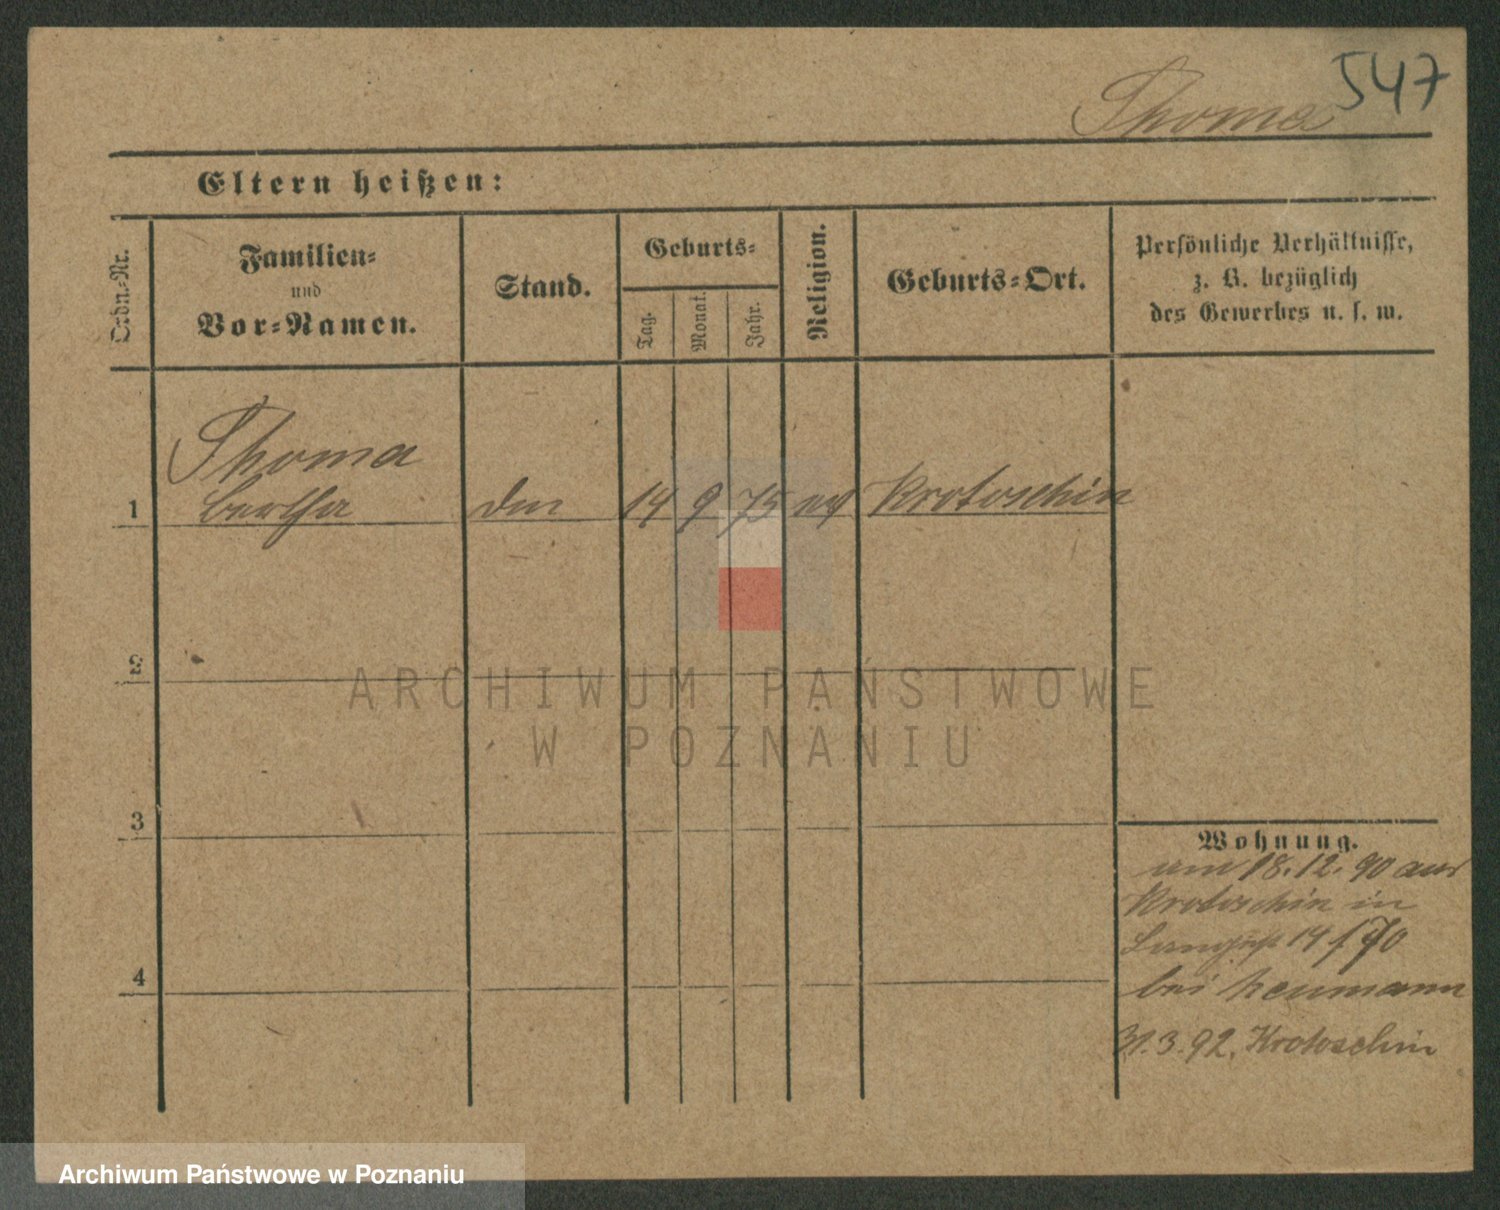 547
Thoma
Eltern heißen:
Ordn.-Nr.
Familien-
und
Vor-Namen.
Stand.
Geburts-
Tag.
Monat.
Jahr.
Religion.
Geburts-Ort.
Persönliche Verhältnisse,
z. B. bezüglich
des Gewerbes u. s. w.
Thoma
1 Bertha 14 9 75 Krotoschin
2
3
4
Wohnung.
18.12.90 aus
Krotoschin in
14 / 70
bei Neumann
31.3.92. Krotoschin
ARCHIWUM PAŃSTWOWE
W POZNANIU
Archiwum Państwowe w Poznaniu